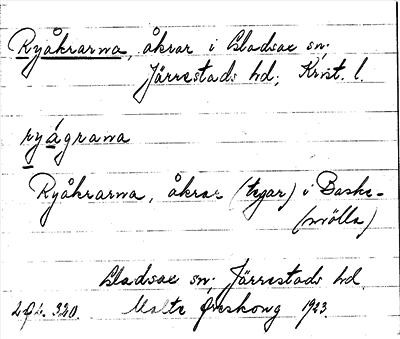 Ryåkrarna, åkrar i Gladsax sn;
Järrestads hd; Krist. l.
ryágrana
Ryåkrarna, åkrar (tegar) i Baske-
(mölla)
Gladsax sn; Järrestads hd.
Malte Areskoug 1923.